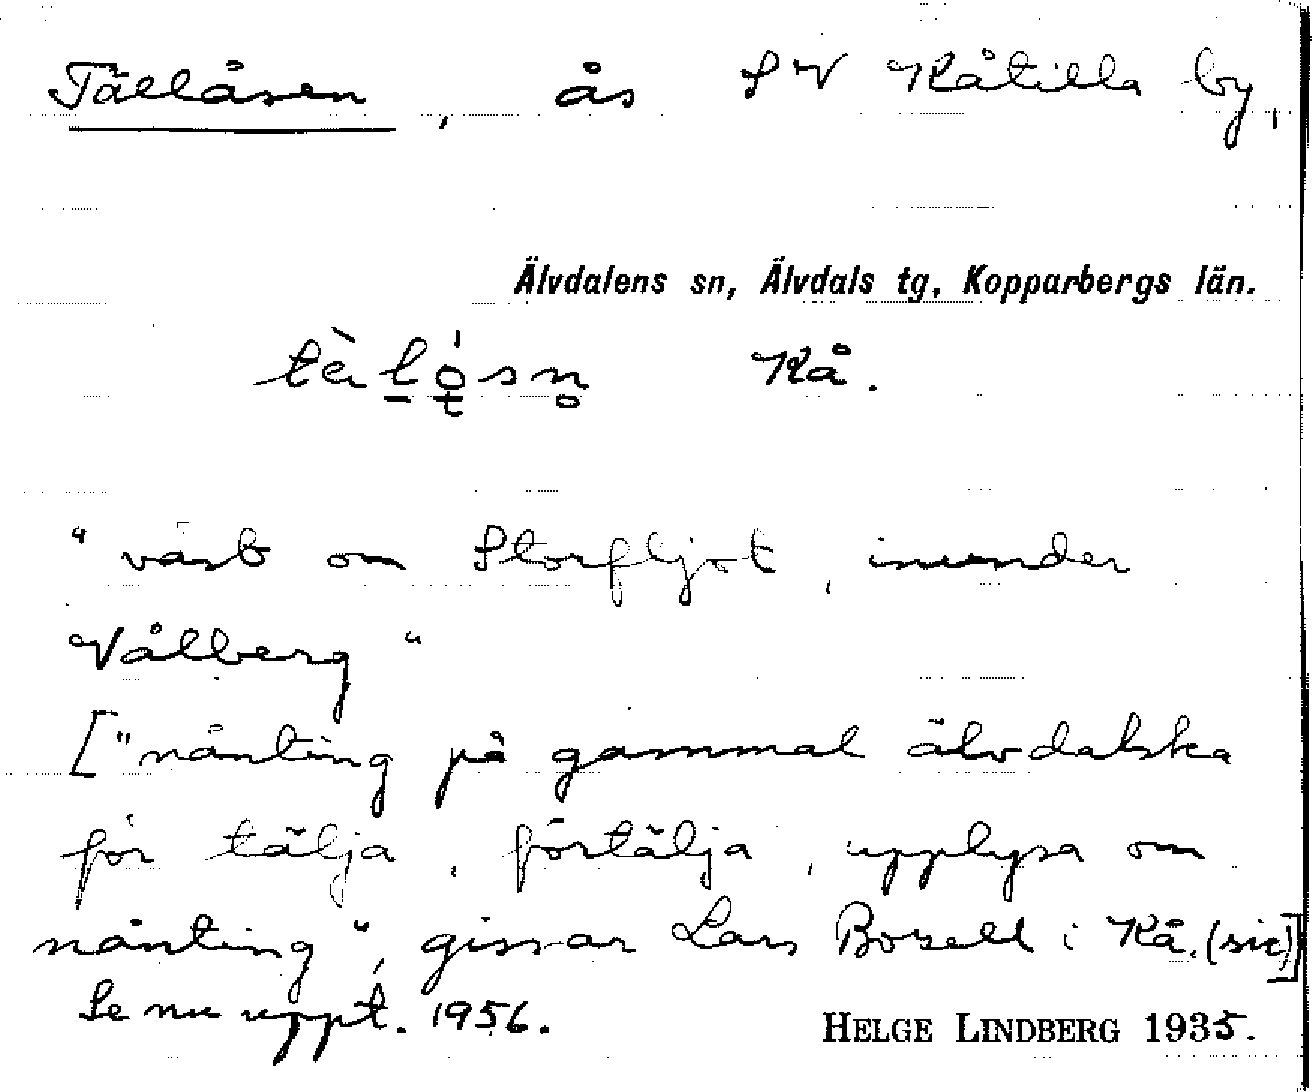 Tällåsen, ås SV Kåtilla by,
Älvdalens sn, Älvdals tg, Kopparbergs län.
Kå.
"väst om Storfljot, inunder
Vålberg"
["nånting på gammal älvdalska
för tälja, förtälja, upplysa om
nånting", gissar Lars Borell i Kå. (sic)]
Se nu uppt. 1956.
HELGE LINDBERG 1935.